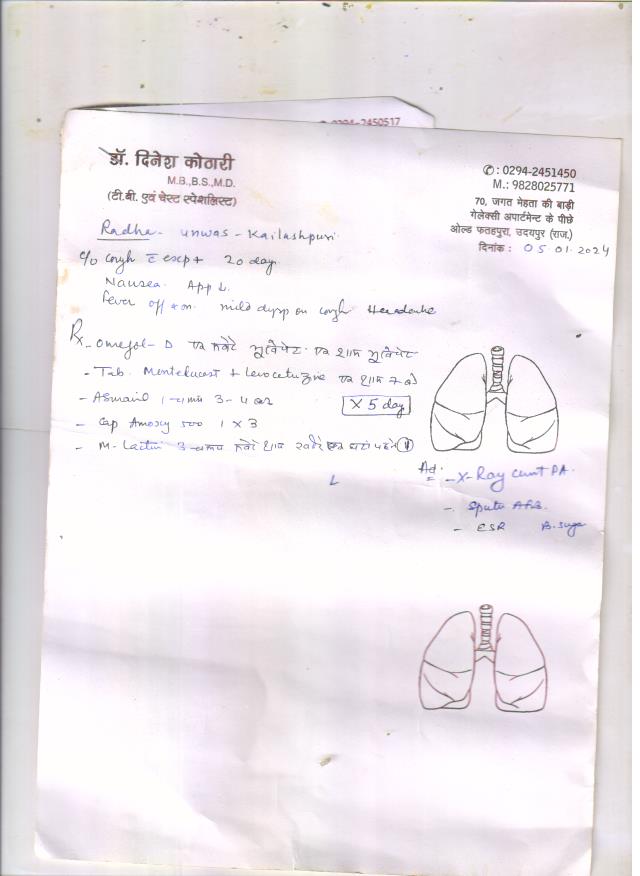 0294-2450517
डॉ. दिनेश कोठारी
M.B.,B.S.,M.D.
(टी.बी. एवं चेस्ट स्पेशलिस्ट)
✆ : 0294-2451450
M.: 9828025771
70, जगत मेहता की बाड़ी
गेलेक्सी अपार्टमेन्ट के पीछे
ओल्ड फतहपुरा, उदयपुर (राज.)
दिनांक : 05.01.2024
Radha - unwas - Kailashpuri
c/o cough c̄ exp + 20 day
Nausea. App ↓
Fever off & on mild dysp on cough Headache
Rx - Omejol - D एक सवेरे एक शाम
- Tab. Montelucast + Levocetrizine एक शाम 7 बजे
- 1 चम्मच 3-4 बार
X 5 day
- Cap Amoxy 500 1 x 3
- 3 चम्मच सवेरे शाम
Ad:
- X-Ray Chest PA.
- Sputu AFB.
- ESR B. Suga